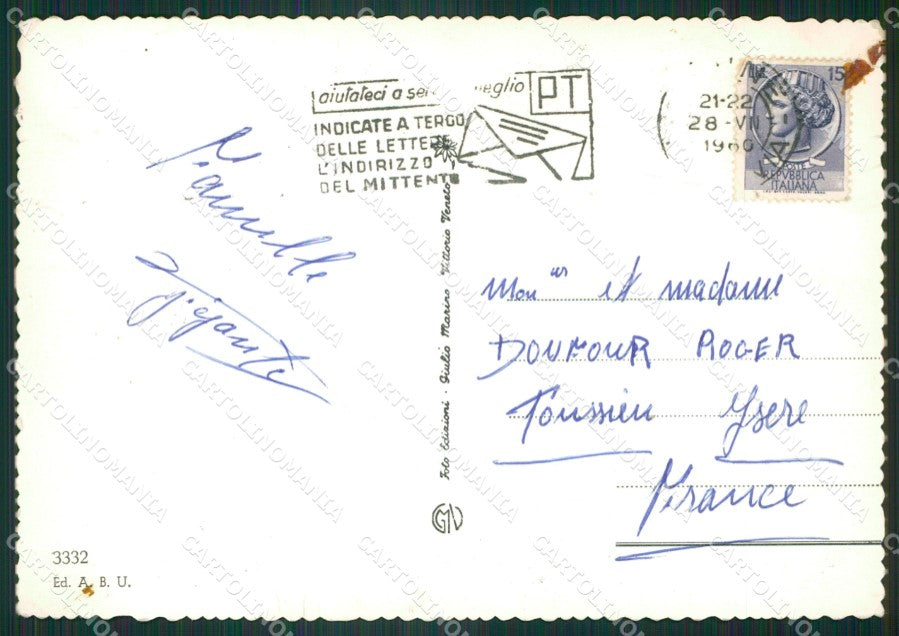 aiutateci a ser eglio
PT
INDICATE A TERGO
DELLE LETTERE
L'INDIRIZZO
DEL MITTENTE
21-22
28 -VII
1960
15
POSTE
REPVBBLICA
ITALIANA
Famille
Gigante
Foto Edizioni · Giulio Marino Vittorio Veneto
Monier et madame
DOUFOUR ROGER
Toussieu Ysere
France
3332
Ed. A. B. U.
CARTOLINOMANIA